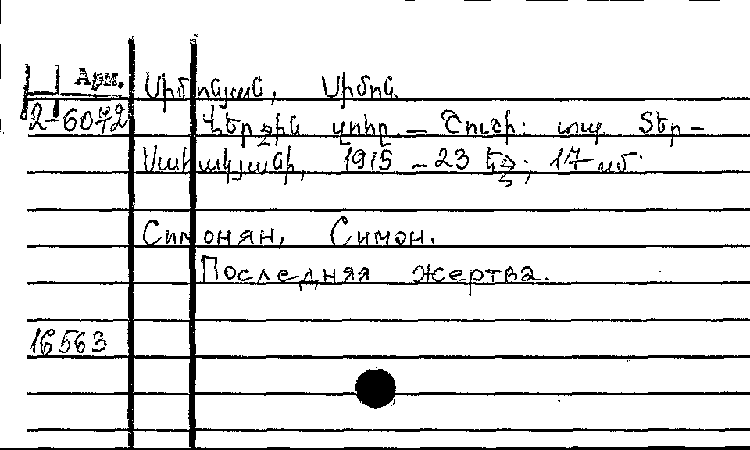 Арм.
Սիմոնյան, Սիմոն.
2-6072
Վերջին զոհը. — Շուշի: տպ. Տեր-
Սահակյանի, 1915 - 23 էջ; 17 սմ.
Симонян, Симон.
Последняя жертва.
16563